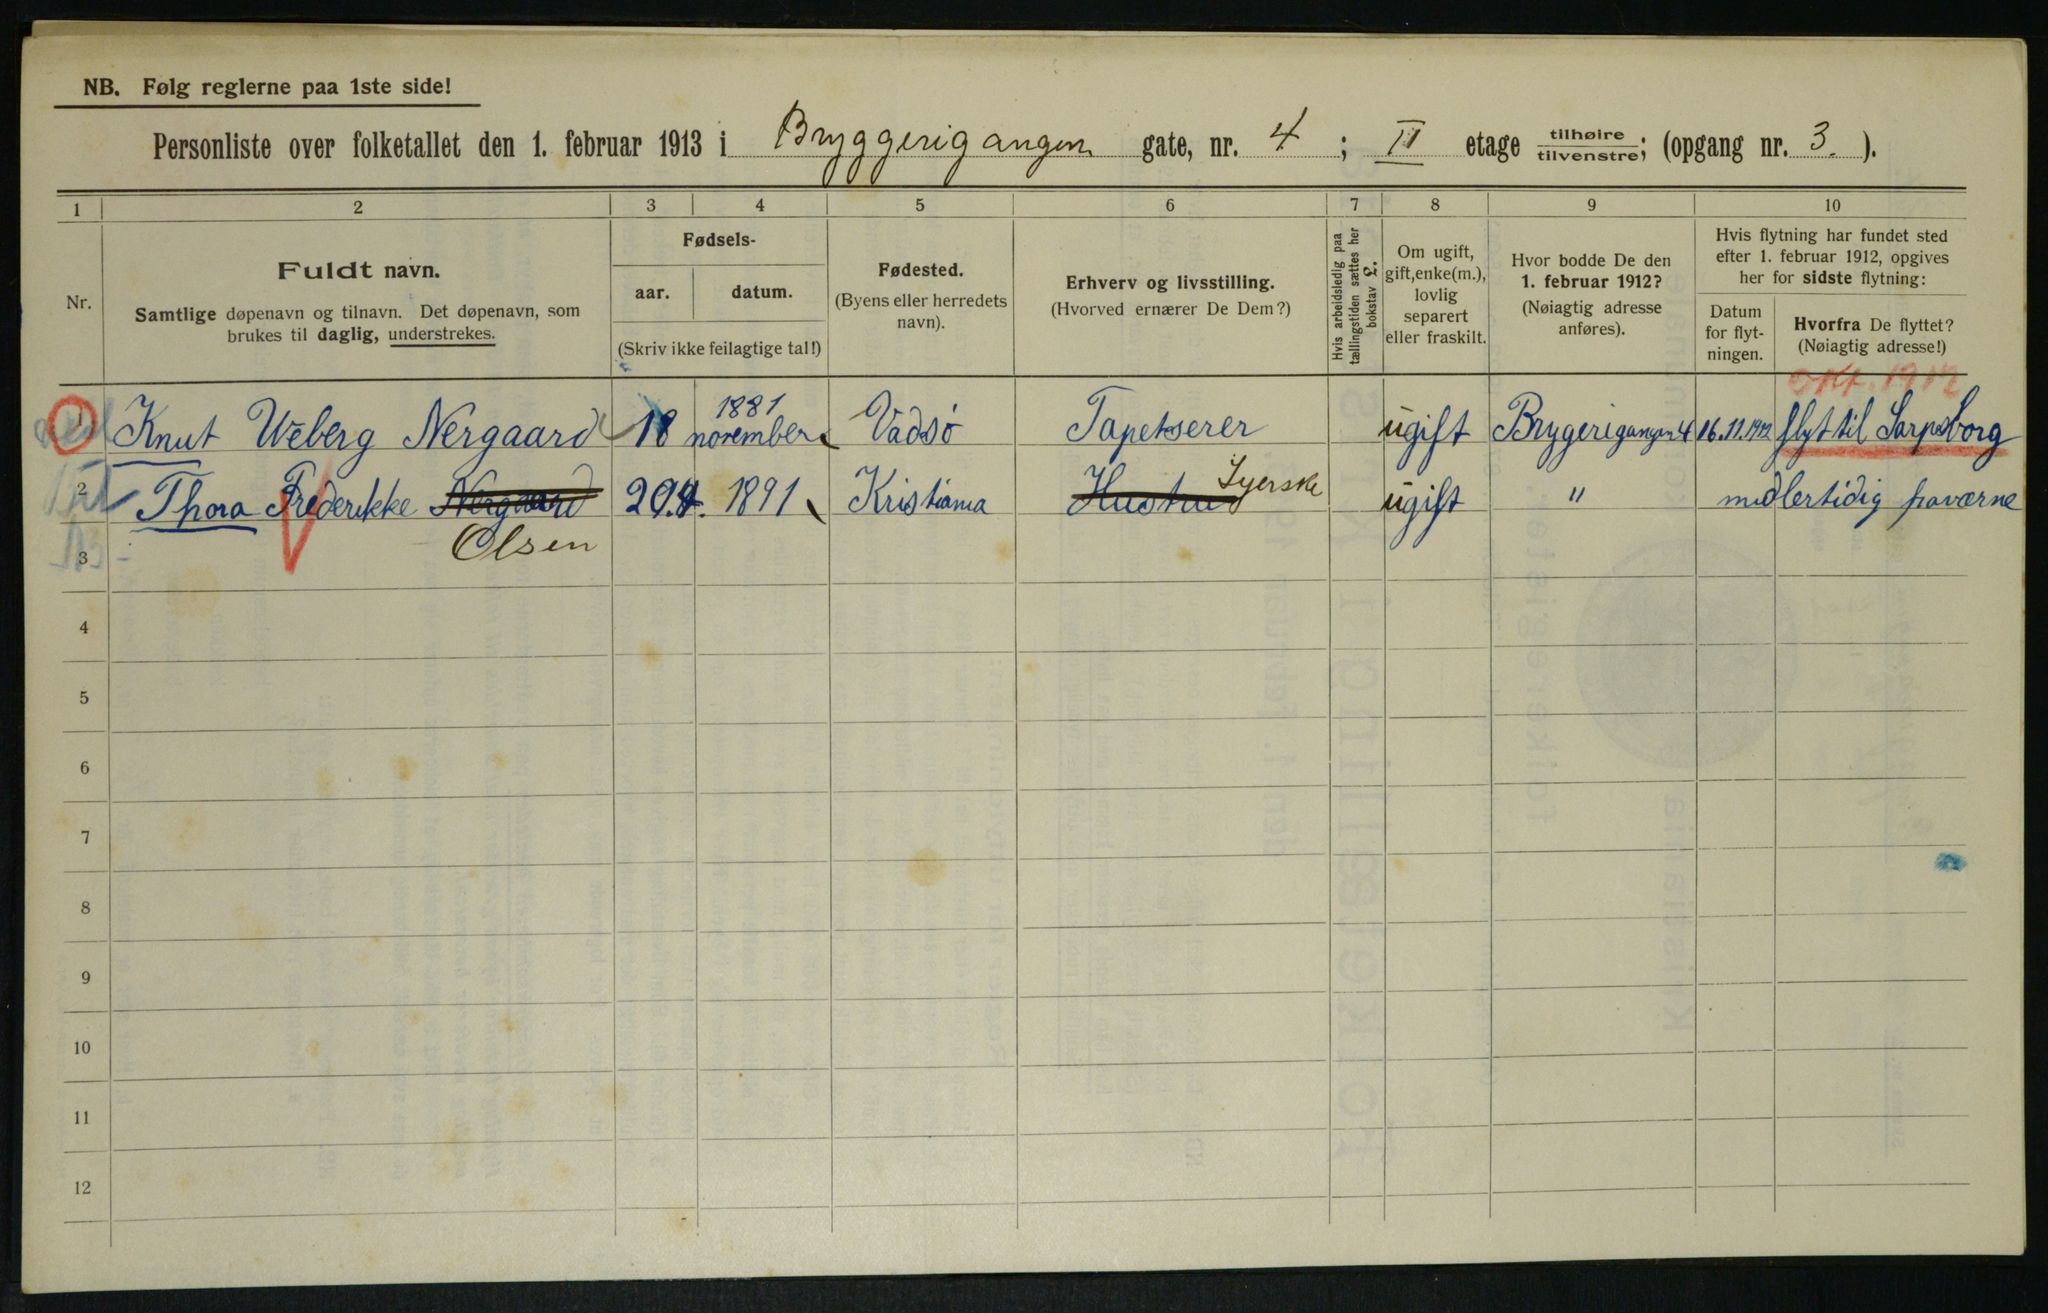 NB. Følg reglerne paa 1ste side!
Personliste over folketallet den 1. februar 1913 i Bryggerigangen gate, nr. 4 ; II etage tilhøire/tilvenstre; (opgang nr. 3. ).
1 2 3 4 5 6 7 8 9 10
Nr.
Fuldt navn.
Samtlige døpenavn og tilnavn. Det døpenavn, som
brukes til daglig, understrekes.
Fødsels-
aar. datum.
(Skriv ikke feilagtige tal!)
Fødested.
(Byens eller herredets
navn).
Erhverv og livsstilling.
(Hvorved ernærer De Dem?)
Hvis arbeidsledig paa
tællingstiden sættes her
bokstav L.
Om ugift,
gift, enke(m.),
lovlig
separert
eller fraskilt.
Hvor bodde De den
1. februar 1912?
(Nøiagtig adresse
anføres).
Hvis flytning har fundet sted
efter 1. februar 1912, opgives
her for sidste flytning:
Datum
for flyt-
ningen.
Hvorfra De flyttet?
(Nøiagtig adresse!)
Okt. 1912
1 Knut Weberg Nergaard 18 1881 november Vadsö Tapetserer ugift Brygerigangen 4 16.11.1912 flyt til Sarpsborg
2 Thora Frederikke Nergaard 29. 1891 Kristiania Hustru Syerske ugift " midlertidig fraværne
Olsen
3
4
5
6
7
8
9
10
11
12